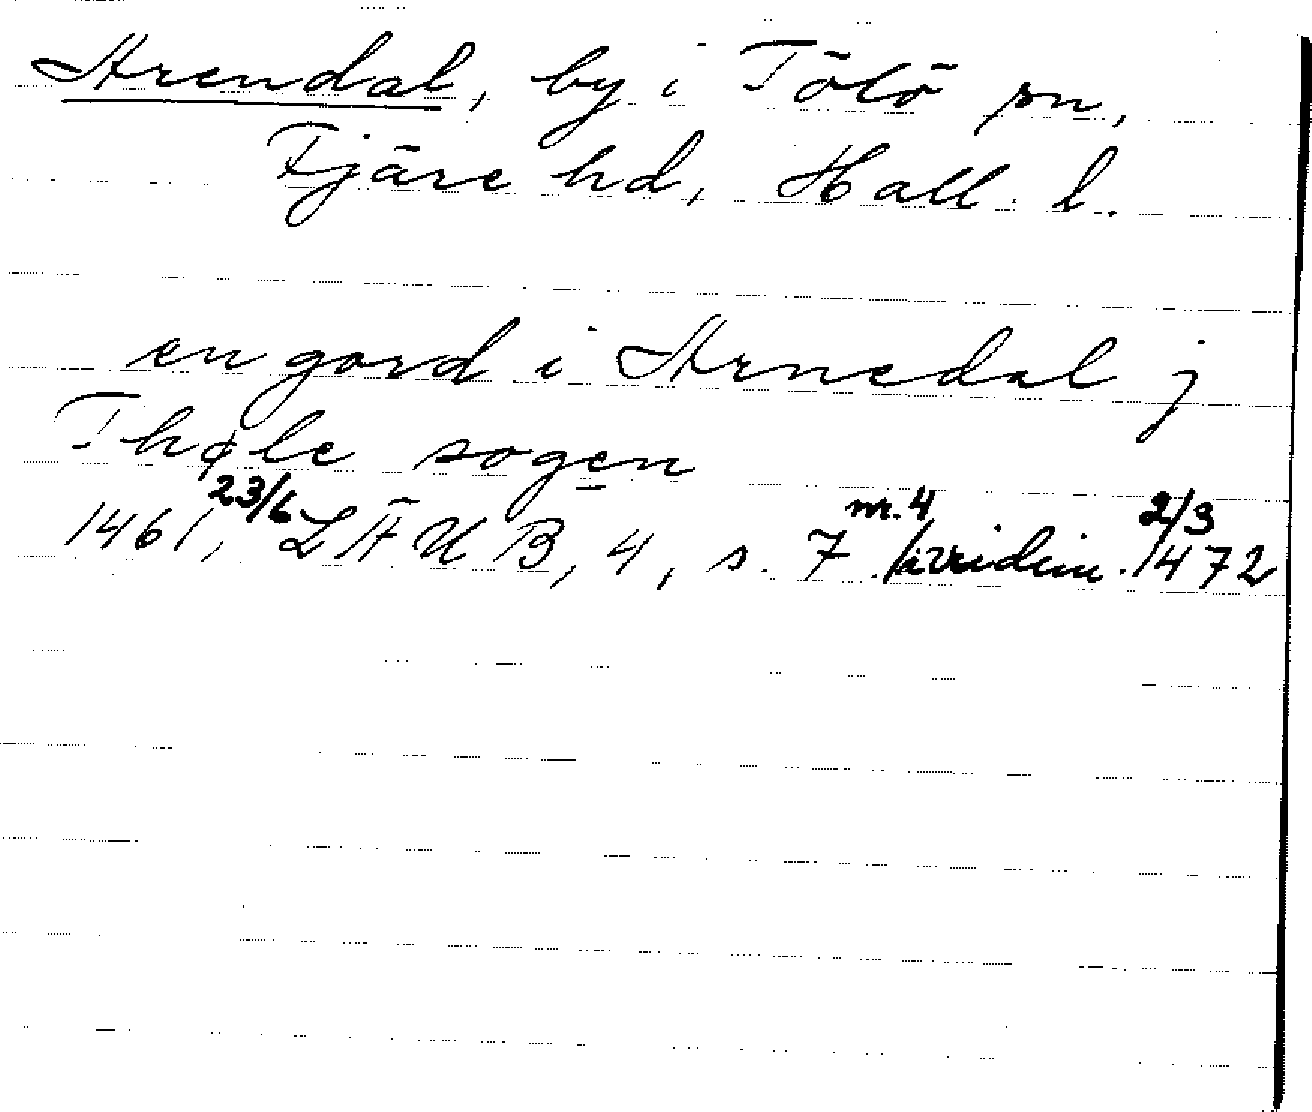 Arendal, by i Tölö sn,
Fjäre hd, Hall. l.
en gord i Arnedal j
Thøle sogen
1461, 23/6 LÄUB, 4, s. 7 nr. 4 /i vidim. 2/3 1472